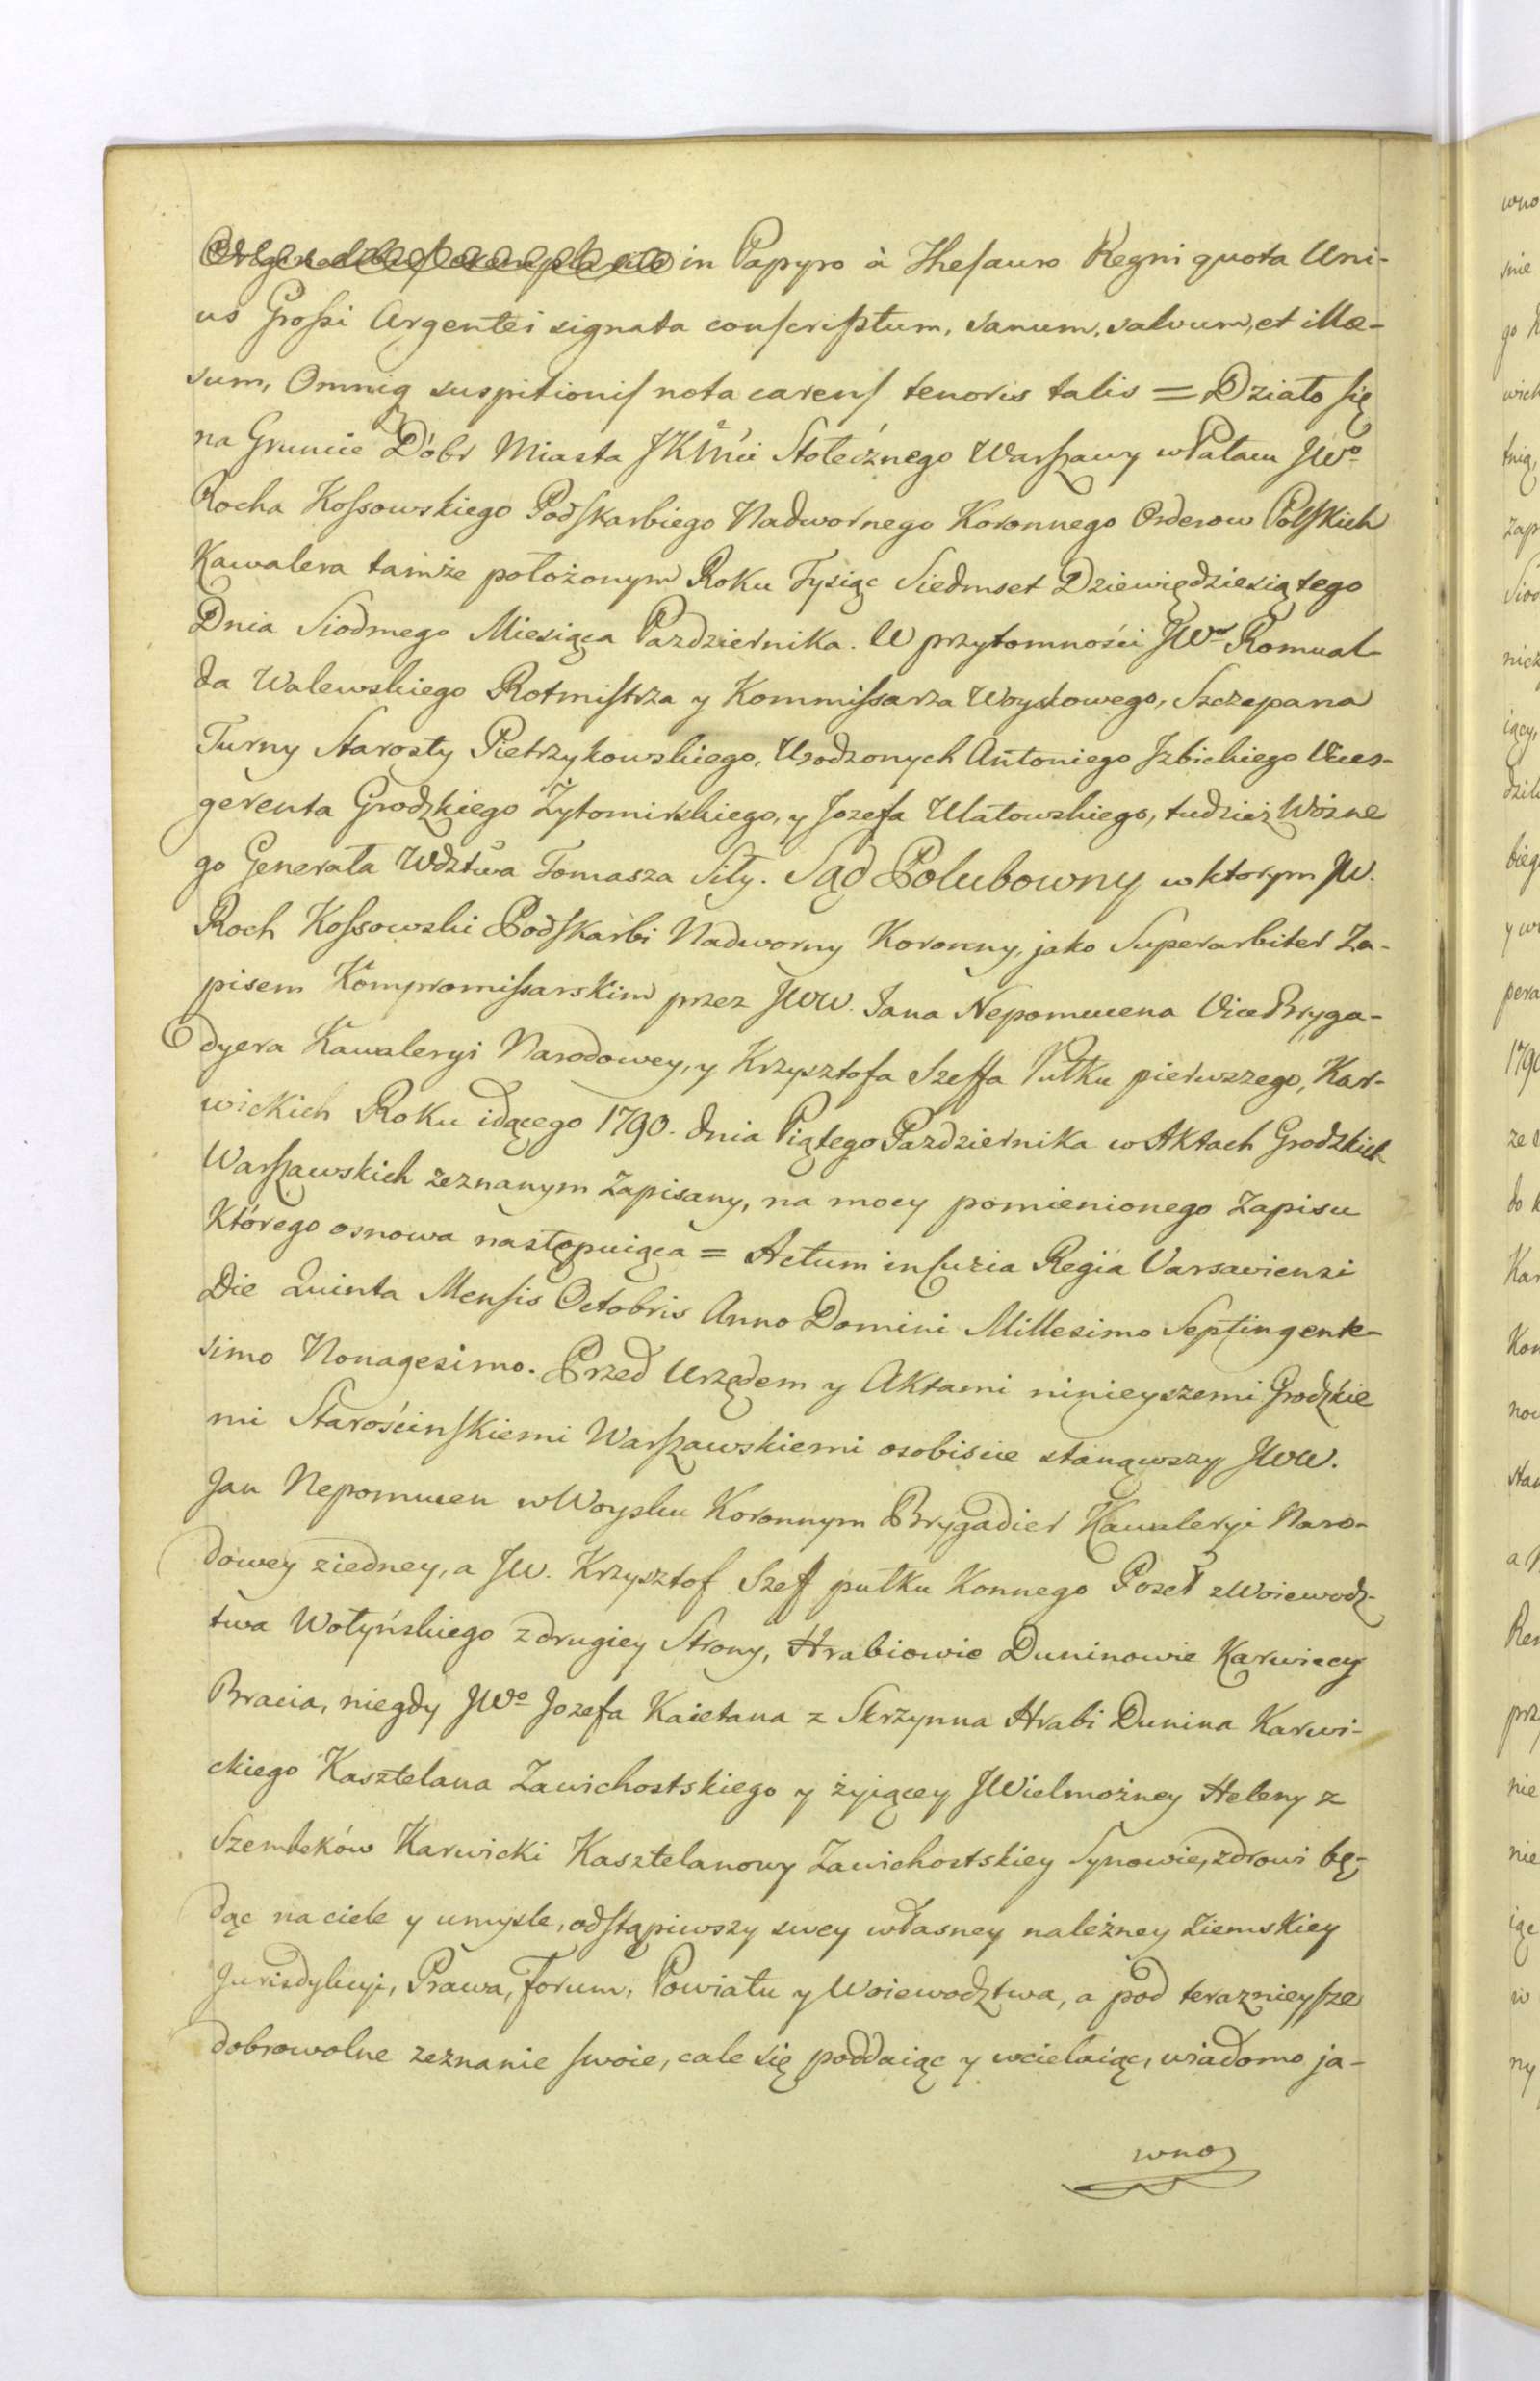 in Papyro à Thesauro Regni quota Uni-
us Grossi Argentei signata conscriptum, sanum, salvum, et illæ-
sum, Omniq suspitionis nota carens tenoris talis = Działo się
na Gruncie Dóbr Miasta JKMci Stołecznego Warszawy w Pałacu JWo
Rocha Kossowskiego Podskarbiego Nadwornego Koronnego Orderow Polskich
Kawalera tamże położonym Roku Tysiąc Siedmset Dziewiędziesiątego
Dnia Siodmego Miesiąca Pazdziernika. W przytomności JWo Romual-
da Walewskiego Rotmistrza y Kommissarza Woyskowego, Szczepana
Turny Starosty Pietrzykowskiego, Urodzonych Antoniego Jzbickiego Vices-
gerenta Grodzkiego Żytomirskiego, y Jozefa Ulatowskiego, tudzież Woźne
go Generała Wdztwa Tomasza Siły. Sąd Polubowny w ktorym JW.
Roch Kossowski Podskarbi Nadworny Koronny, jako Superarbiter Za-
pisem Kompromissarskim przez JWW. Jana Nepomucena Vice Bryga-
dyera Kawaleryi Narodowey, y Krzysztofa Szeffa Pułku pierwszego, Kar-
wickich Roku idącego 1790. dnia Piątego Pazdziernika w Aktach Grodzkich
Warszawskich zeznanym Zapisany, na mocy pomienionego Zapisu
Którego osnowa nastąpuiąca = Actum in Curia Regia Varsaviensi
Die Quinta Mensis Octobris Anno Domini Millesimo Septingente-
simo Nonagesimo. Przed Urzędem y Aktami ninieyszemi Grodzkie
mi Starościnskiemi Warszawskiemi osobiscie stanąwszy JWW.
Jan Nepomucen w Woysku Koronnym Brygadier Kawaleryi Naro-
dowey ziedney, a JW. Krzysztof Szef pułku Konnego Poseł z Woiewodz-
twa Wołyńskiego z drugiey Strony, Hrabiowie Duninowie Karwiccy
Bracia, niegdy JWo Jozefa Kaietana z Skrzynna Hrabi Dunina Karwi-
ckiego Kasztelana Zawichostskiego y żyiącey JWielmożney Heleny z
Szembeków Karwicki Kasztelanowy Zawichostskiey Synowie, zdrowi bę-
dąc na ciele y umysle, odstąpiwszy swey własney należney Ziemskiey
Jurisdykcyi, Prawa, Forum, Powiatu y Woiewodztwa, a pod teraznieysze
dobrowolne zeznanie swoie, cale się poddaiąc y wcielaiąc, wiadomo ja-
wno